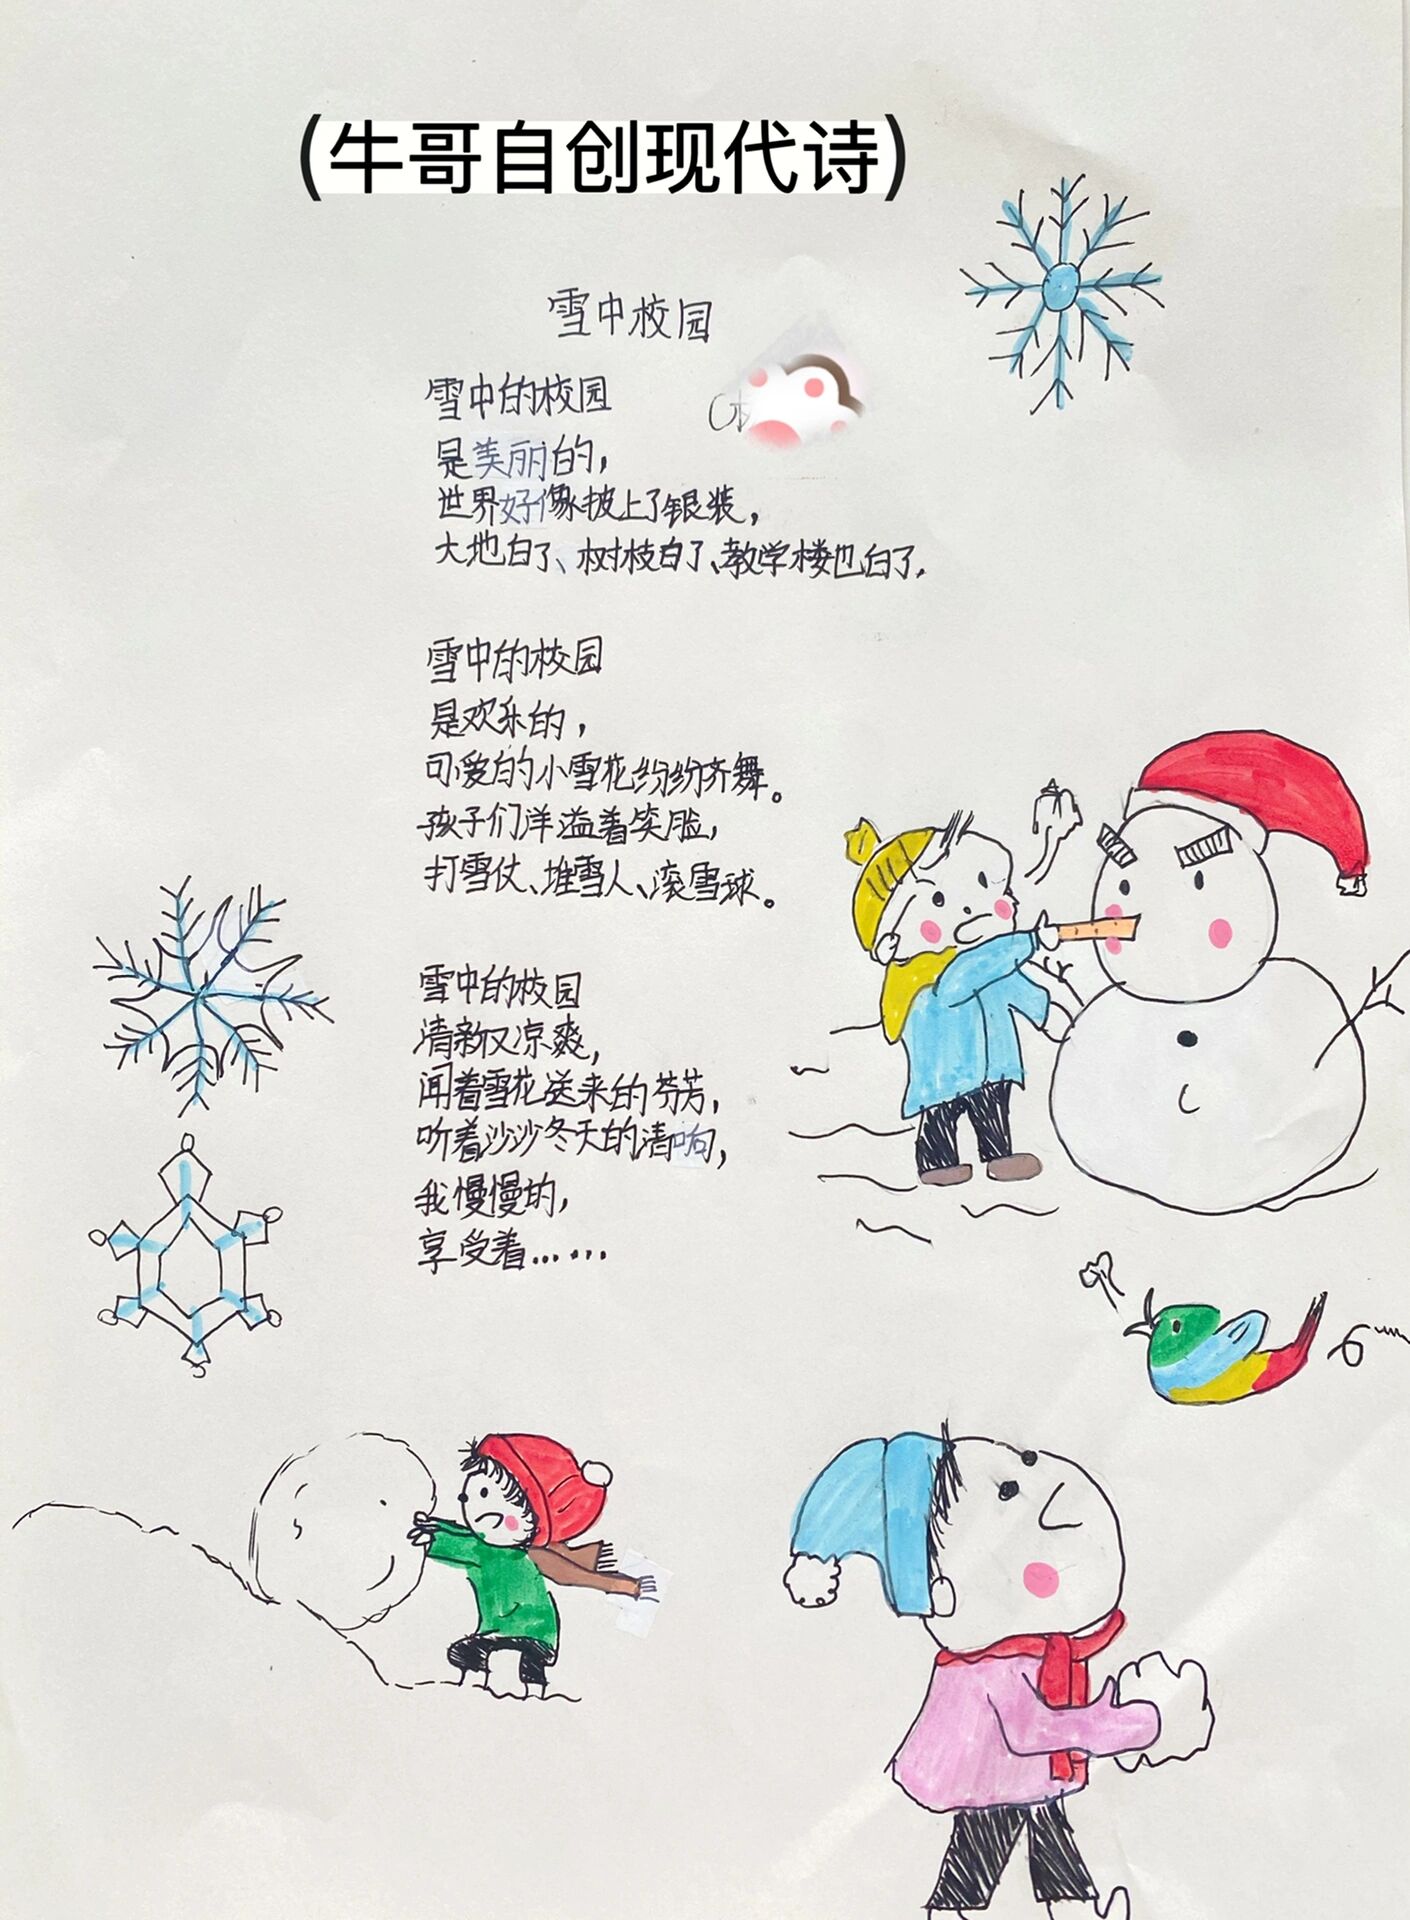 (牛哥自创现代诗)
雪中校园
雪中的校园
是美丽的，
世界好像披上了银装，
大地白了、树枝白了、教学楼也白了.
雪中的校园
是欢乐的，
可爱的小雪花纷纷齐舞。
孩子们洋溢着笑脸，
打雪仗、堆雪人、滚雪球。
雪中的校园
清新又凉爽，
闻着雪花送来的芬芳，
听着沙沙冬天的清响，
我慢慢的，
享受着……